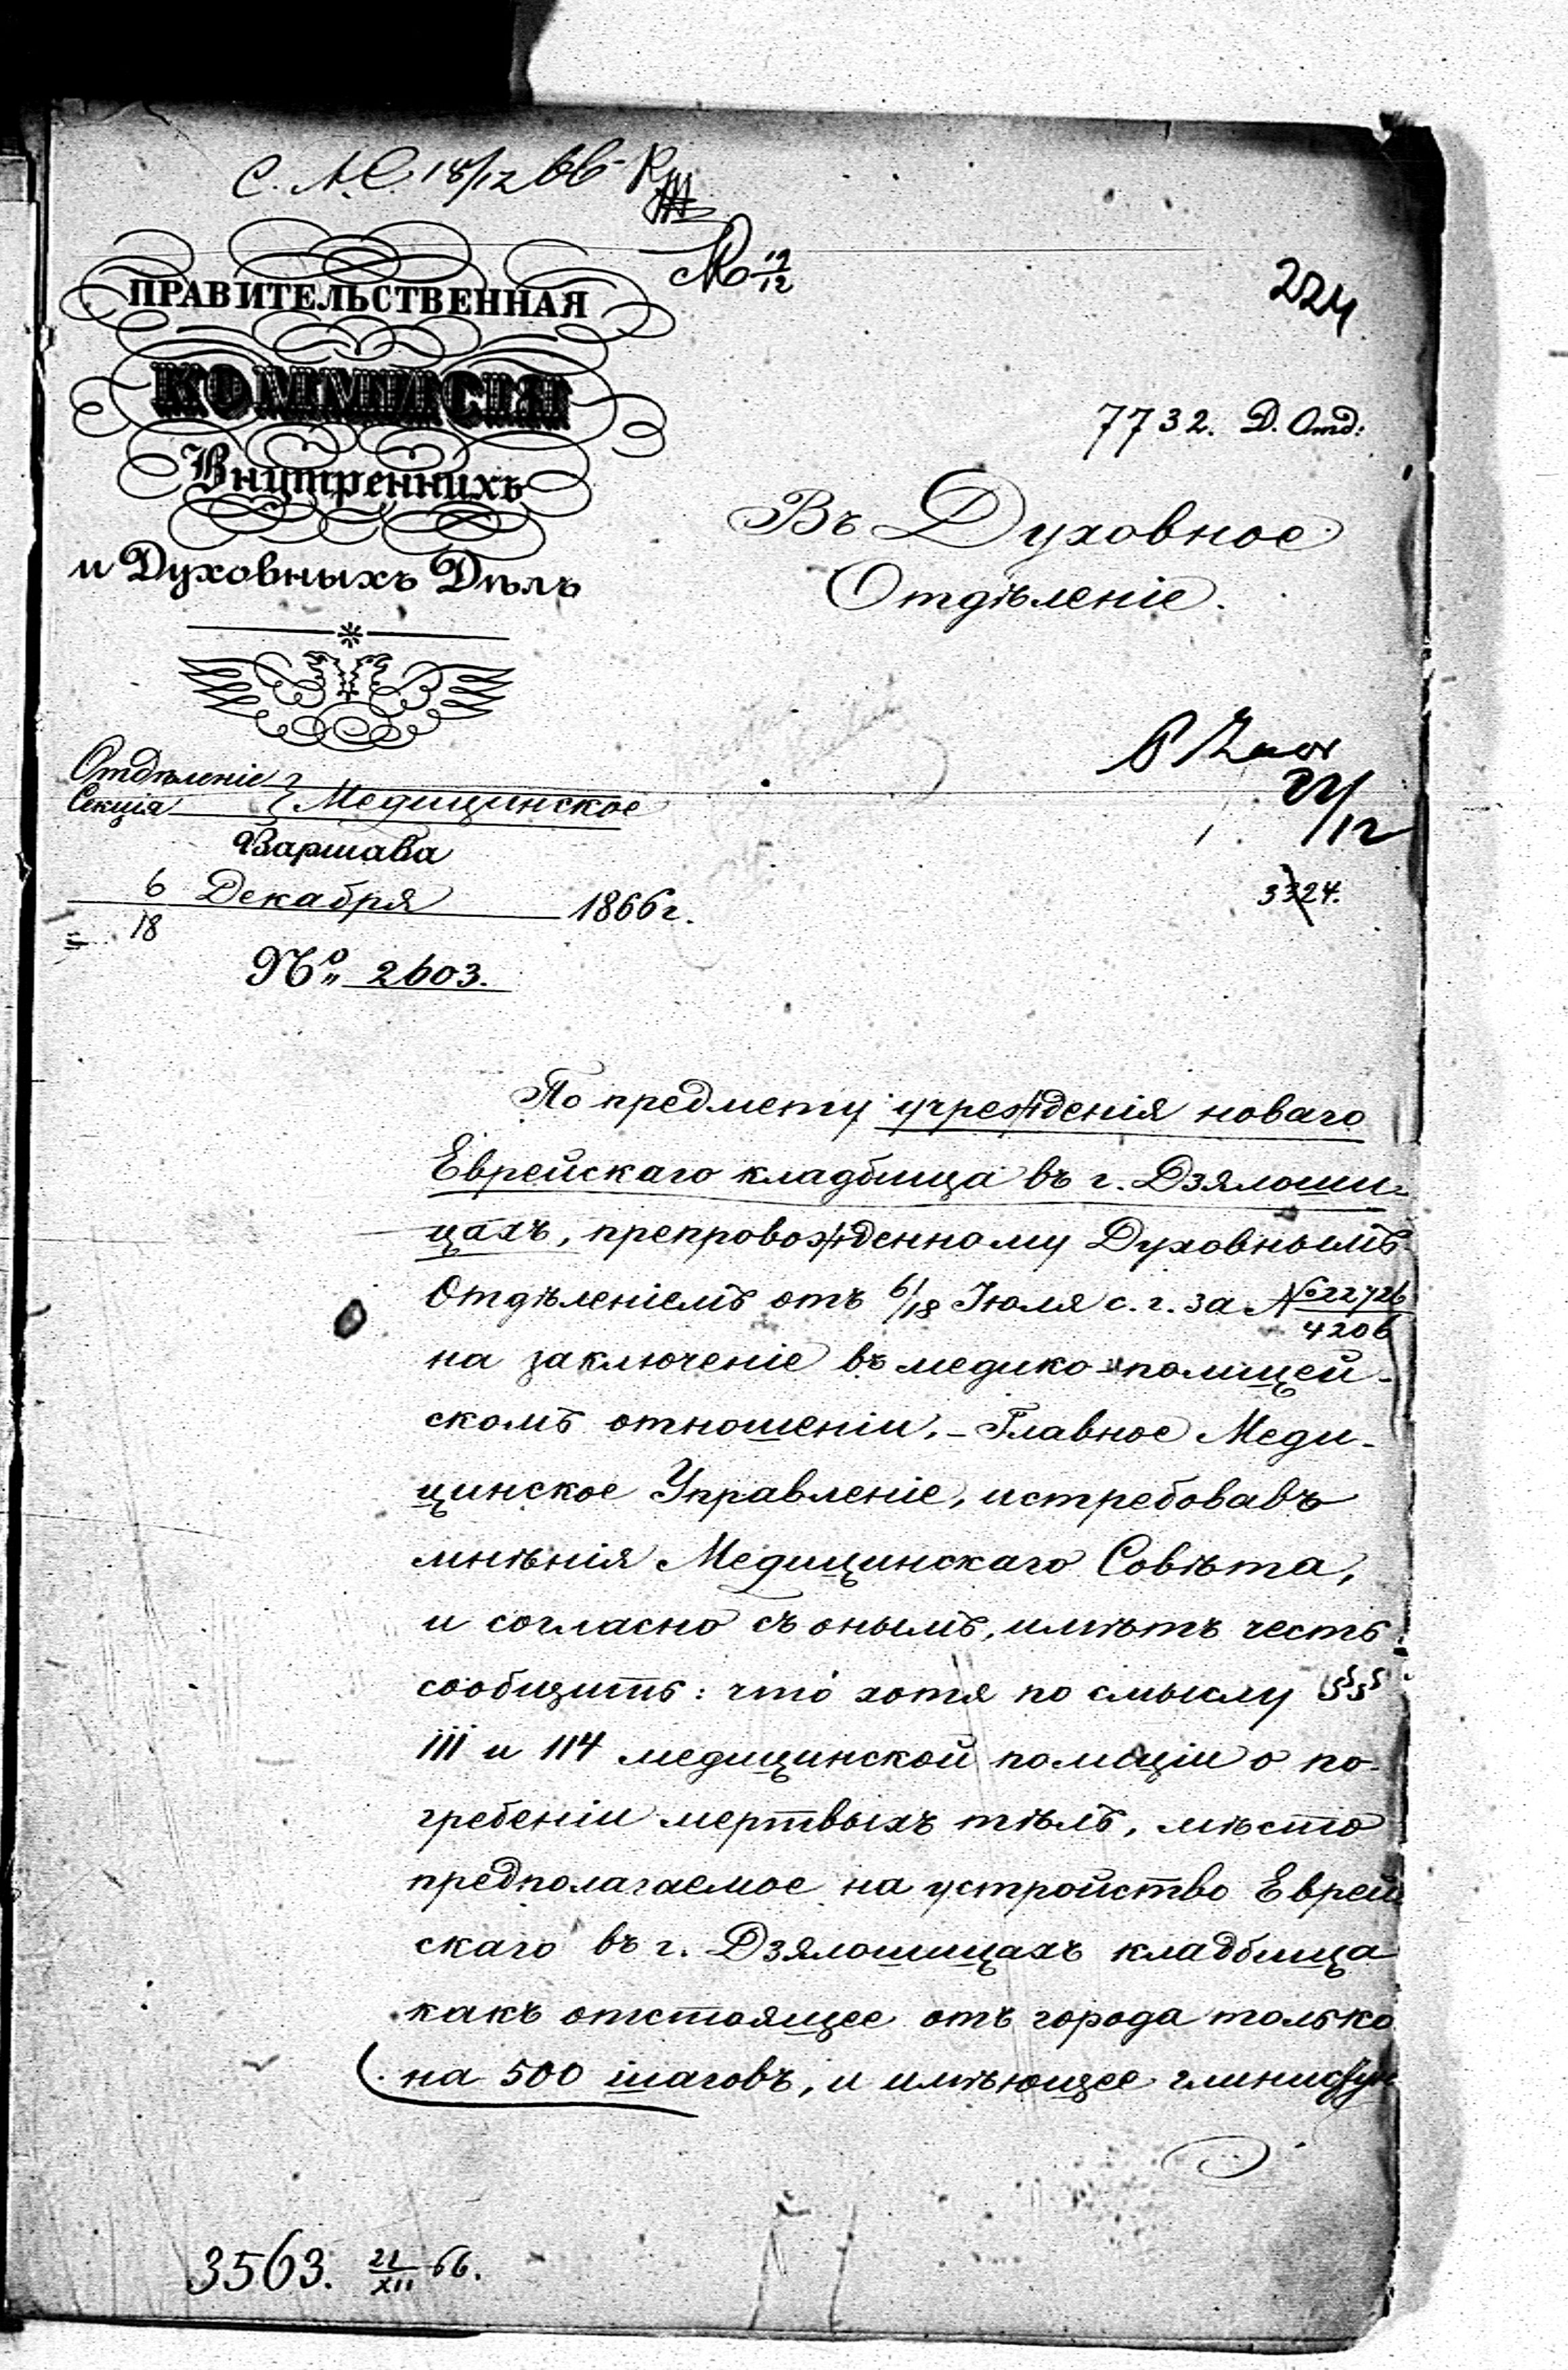 18/12 66
19/12
224
ПРАВИТЕЛЬСТВЕННАЯ
КОММИСІЯ
Внутреннихъ
и Духовныхъ Дѣлъ
7732. Д. Отд:
Въ Духовное
Отдѣленіе.
22/12
3324.
Отдѣленіе
Секція
Медицинское
Варшава
6/18 Декабря 1866 г.
№ 2603.
По предмету учрежденія новаго
Еврейскаго кладбища въ г. Дзялоши-
цахъ, препровожденному Духовнымъ
Отдѣленіемъ отъ 6/18 Іюля с. г. за № 22726/4206
на заключеніе въ медико-полицей-
скомъ отношеніи, - Главное Меди-
цинское Управленіе, истребовавъ
мнѣнія Медицинскаго Совѣта,
и согласно съ онымъ, имѣетъ честь
сообщить: что хотя по смыслу §§
111 и 114 медицинской полиціи о по-
гребеніи мертвыхъ тѣлъ, мѣсто
предполагаемое на устройство Еврей
скаго въ г. Дзялошицахъ кладбища
какъ отстоящее отъ города только
на 500 шаговъ, и имѣющее
3563. 21/XII 66.